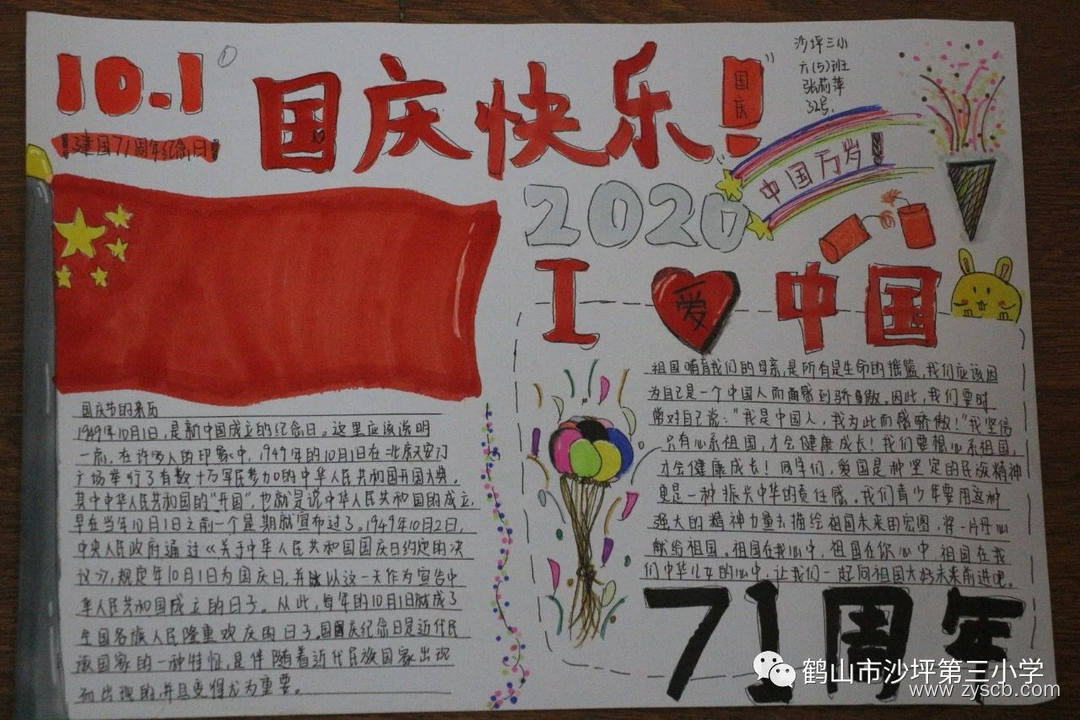 10.1
①
国庆快乐!
国庆
沙坪三小
六(5)班
32号.
建国71周年纪念日
中国万岁!
2020
I 爱 中国
国庆节的来历
1949年10月1日,是新中国成立的纪念日。这里应该说明
一点,在许多人的印象中,1949年的10月1日在北京天安门
广场举行了有数十万军民参加的中华人民共和国开国大典。
其中中华人民共和国的"开国",也就是说中华人民共和国的成立,
早在当年10月1日之前一个星期就宣布过了。1949年10月2日,
中央人民政府通过《关于中华人民共和国国庆日约定的决
议》,规定年10月1日为国庆日,并以这一天作为宣告中
华人民共和国成立的日子。从此,每年的10月1日就成了
全国各族人民隆重欢庆的日子。国庆纪念日是近代民
族国家的一种特征,是伴随着近代民族国家出现
而出现的,并且变得尤为重要。
祖国哺育我们的母亲,是所有是生命的摇篮,我们应该因
为自己是一个中国人而而感到骄傲。因此,我们要时
常对自己说:"我是中国人,我为此而感骄傲!"我坚信
只有心系祖国,才会健康成长!我们要根心系祖国,
才会健康成长!同学们,爱国是种坚定的民族精神
更是一种振兴中华的责任感。我们青少年要用这种
强大的精神力量去描绘祖国未来的宏图,将一片丹心
献给祖国。祖国在我心中,祖国在你心中,祖国在我
们中华儿女的心中,让我们一起向祖国大好未来前进吧。
71周年
鹤山市沙坪第三小学
www.zyscb.com